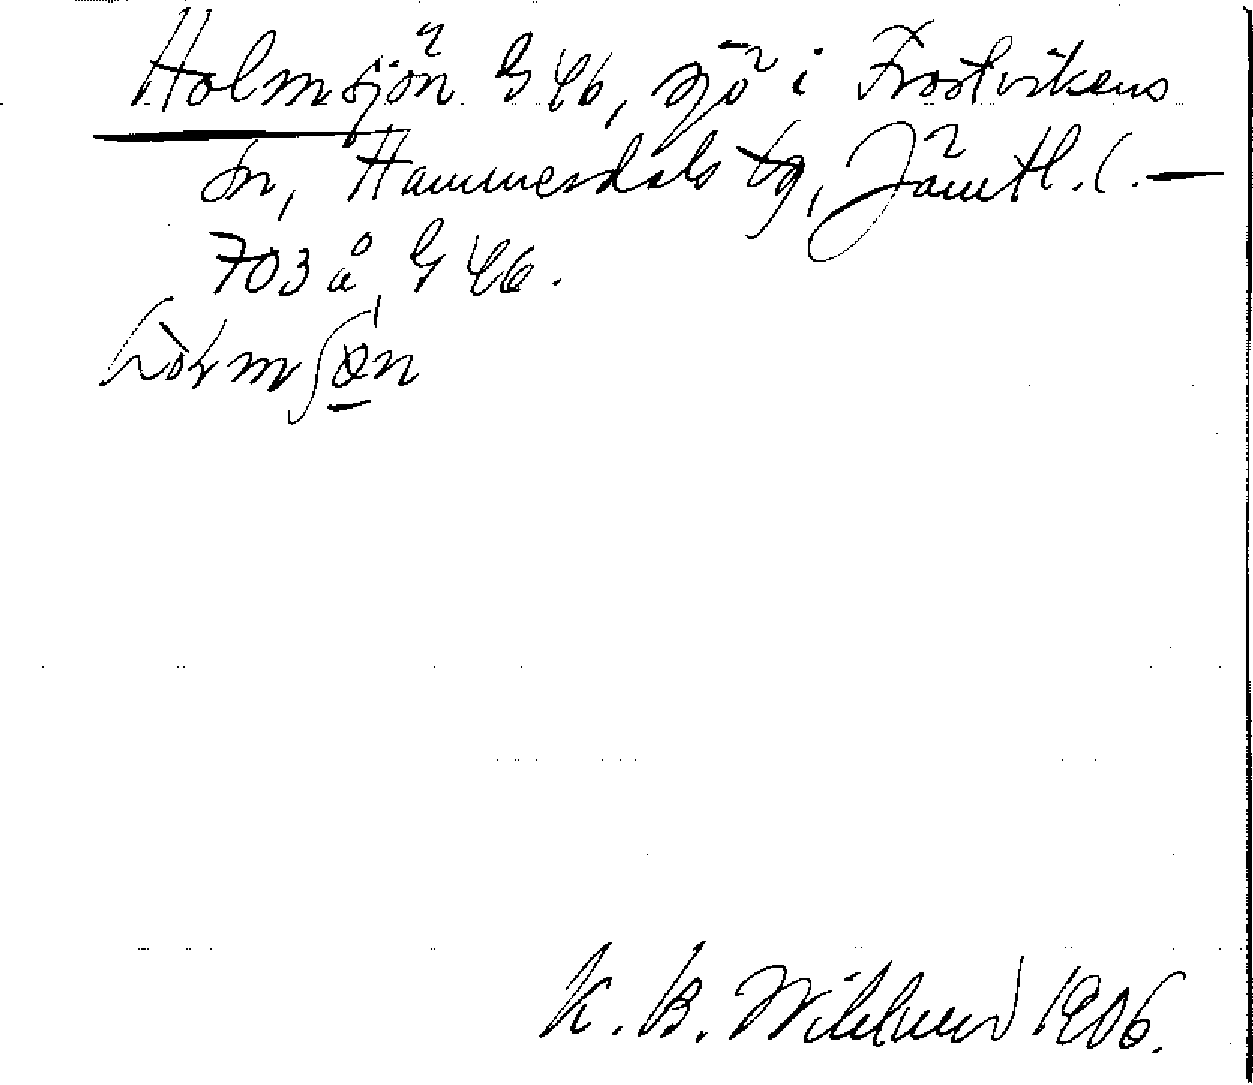 Holmsjön G 46, sjö i Frostvikens
sn, Hammerdals tg, Jämtl. l. —
703 å G 46.
K. B. Wiklund 1906.